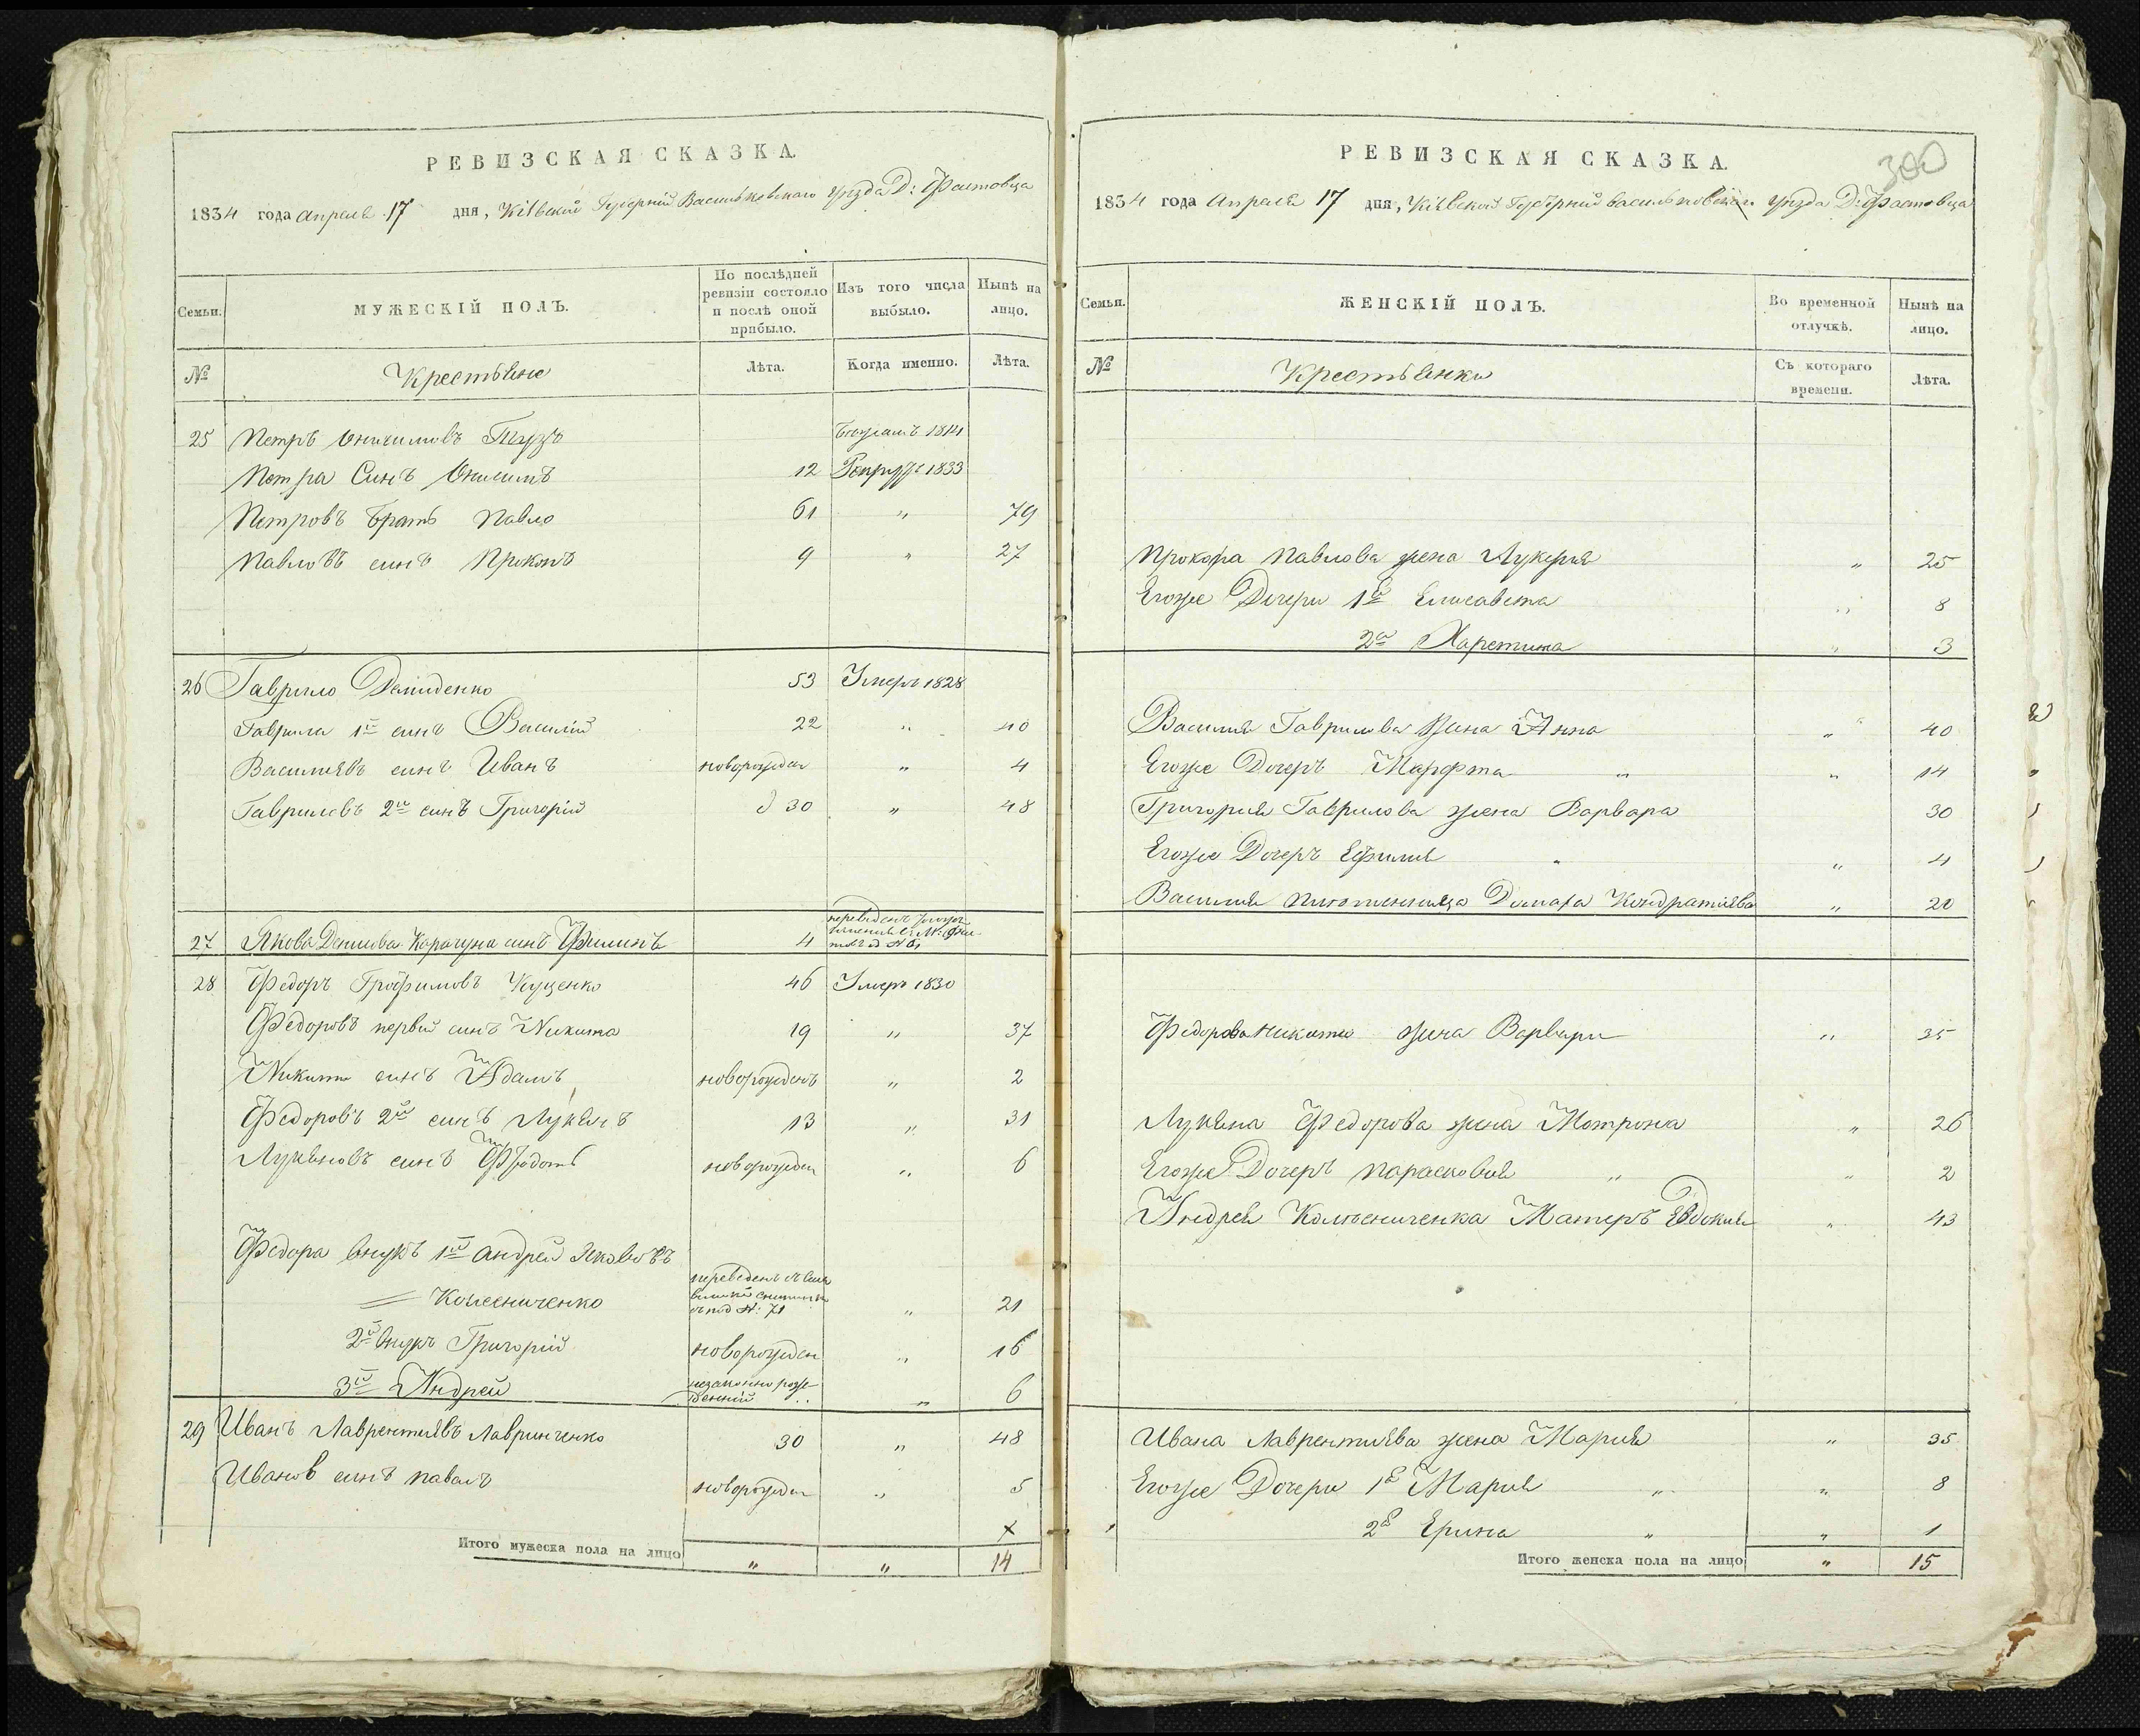 РЕВИЗСКАЯ СКАЗКА.
1834 года апреля 17 дня, Кіевской Губерніи Васильковскаго уезда Д: Фастовца
Семьи.
МУЖЕСКІЙ ПОЛЪ.
По послѣдней
ревизіи состояло
и послѣ оной
прибыло.
Изъ того числа
выбыло.
Нынѣ на
лицо.
№
Крестьяне
Лѣта.
Когда именно.
Лѣта.
25 Петръ 1814
Петра Синъ Онисимъ 12 1833
Петровъ братъ Павло 61 " 79
Павловъ синъ Прокопъ 9 " 27
26 Гаврило Демиденко 53 Умеръ 1828
Гаврила 1й синъ Василій 22 " 40
Василіевъ синъ Иванъ новорожден " 4
Гавриловъ 2й синъ Григорій 30 " 48
27 Якова Карагуна синъ Филипъ 4 переведенъ
28 Федоръ Трофимовъ Куценко 46 Умеръ 1830
Федоровъ первій синъ Никита 19 " 37
Никити синъ Адамъ новорожденъ " 2
Федоровъ 2й синъ Лукянъ 13 " 31
Лукяновъ синъ Федотъ новорожден " 6
Федора внукъ 1й Андрей Яковлевъ
Колесниченко
переведенъ
под №: 71
" 21
2й внукъ Григорій новорожден " 16
3й Андрей незаконно рож-
денній " 6
29 Иванъ Лаврентіевъ Лавринченко 30 " 48
Иванов синъ Павелъ новорожден " 5
х
Итого мужеска пола на лицо " " 14
300
РЕВИЗСКАЯ СКАЗКА.
1834 года Апреля 17 дня, Кіевской Губерніи Васильковскаго уезда Д: Фастовца
Семьи.
ЖЕНСКІЙ ПОЛЪ.
Во временной
отлучкѣ.
Нынѣ на
лицо.
№
Крестьянки
Съ котораго
времени.
Лѣта.
Прокопа Павлова жена Лукерия " 25
Егоже Дочери 1я Елисавета " 8
2я Харетина " 3
Василия Гаврилова Жена Анна " 40
Егоже Дочеръ Марфта " " 14
Григория Гаврилова жена Варвара 30
Егоже Дочеръ Ефимия " " 4
Василия племенница Домаха Кондратіева " 20
Федорова Никити жена Варвара " 35
Лукяна Федорова жена Мотрона " 26
Егоже Дочеръ Парасковия " " 2
Андрея Колесниченка Матеръ Евдокия " 43
Ивана Лаврентиева жена Мария " 35
Егоже Дочери 1я Мария " " 8
2я Ерина " " 1
Итого женска пола на лицо " 15